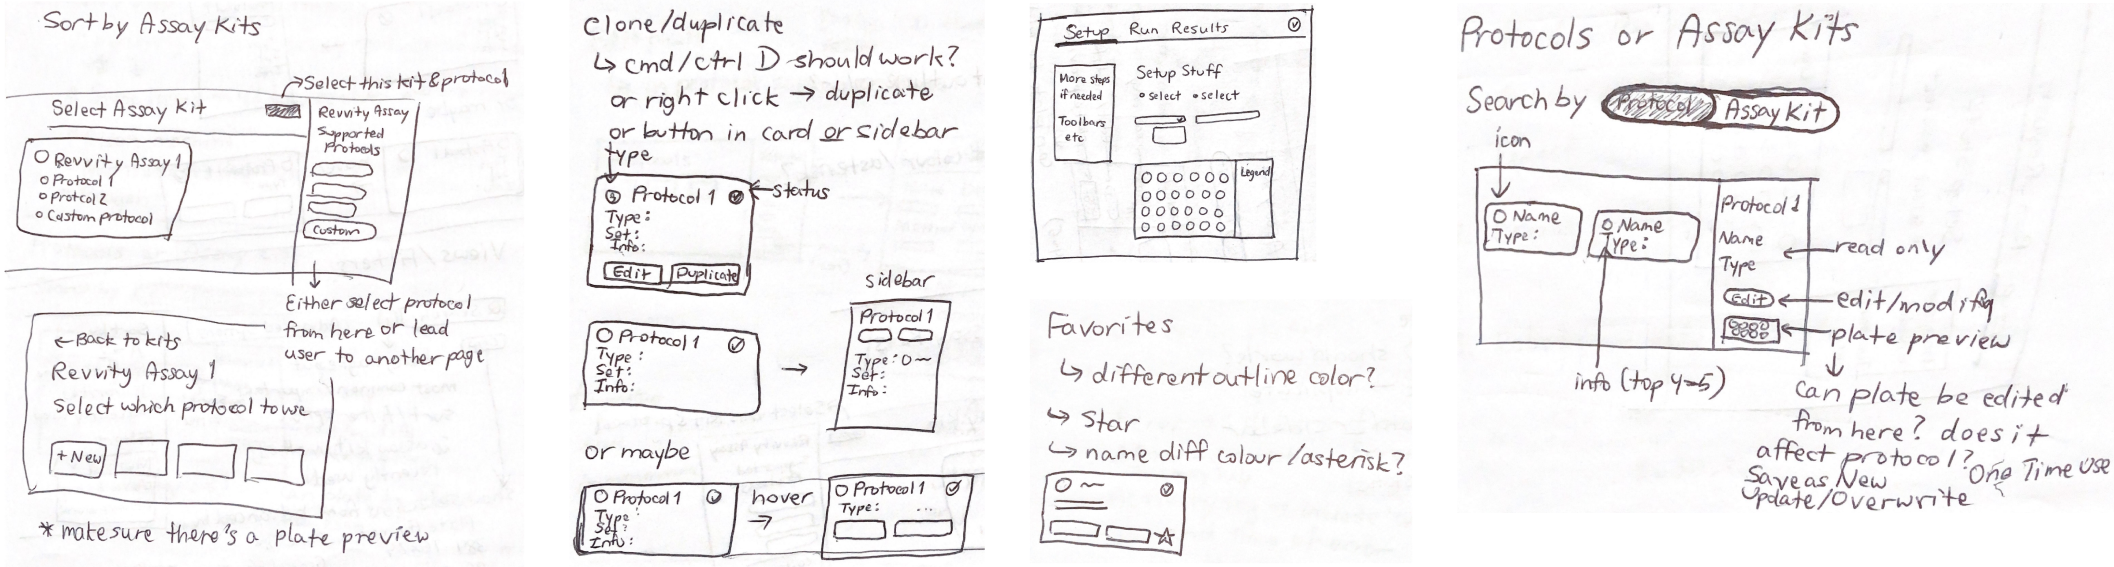 Sort by Assay Kits
Select this kit & protocol
Select Assay Kit
Revvity Assay 1
Protocol 1
Protcol 2
Custom protocol
Revvity Assay
Supported
Protocols
Custom
Either select protocol
from here or lead
user to another page
← Back to kits
Revvity Assay 1
Select which protocol to use
+ New
* make sure there's a plate preview
Clone/duplicate
↳ cmd/ctrl D should work?
or right click → duplicate
or button in card or sidebar
type
Protocol 1
status
Type:
Set:
Info:
Edit
Duplicate
Protocol 1
Type:
Set:
Info:
→
sidebar
Protocol 1
Type:
Set:
Info:
or maybe
Protocol 1
Type
Set:
Info:
hover
→
Protocol 1
Type: ...
Setup Run Results
More steps
if needed
Toolbars
etc
Setup Stuff
select select
Legend
Favorites
↳ different outline color?
↳ Star
↳ name diff colour/asterisk?
Protocols or Assay Kits
Search by Protocol Assay Kit
icon
Name
Type:
Name
Type:
Protocol 1
Name
Type
Edit
read only
edit/modify
plate preview
info (top 4-5)
Can plate be edited
from here? does it
affect protocol?
Save as New
One Time Use
Update/Overwrite